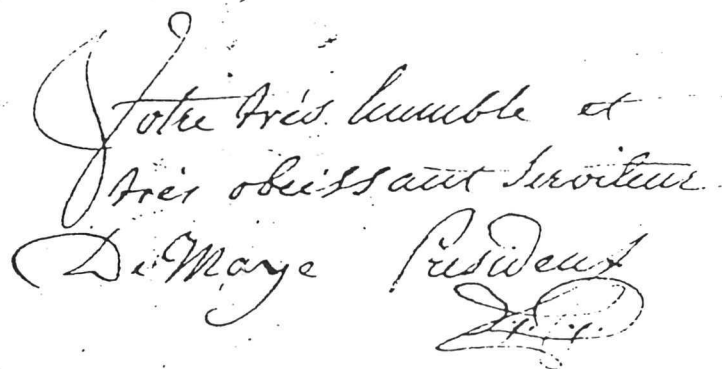 Votre très humble et
très obéissant serviteur
De Maye Président